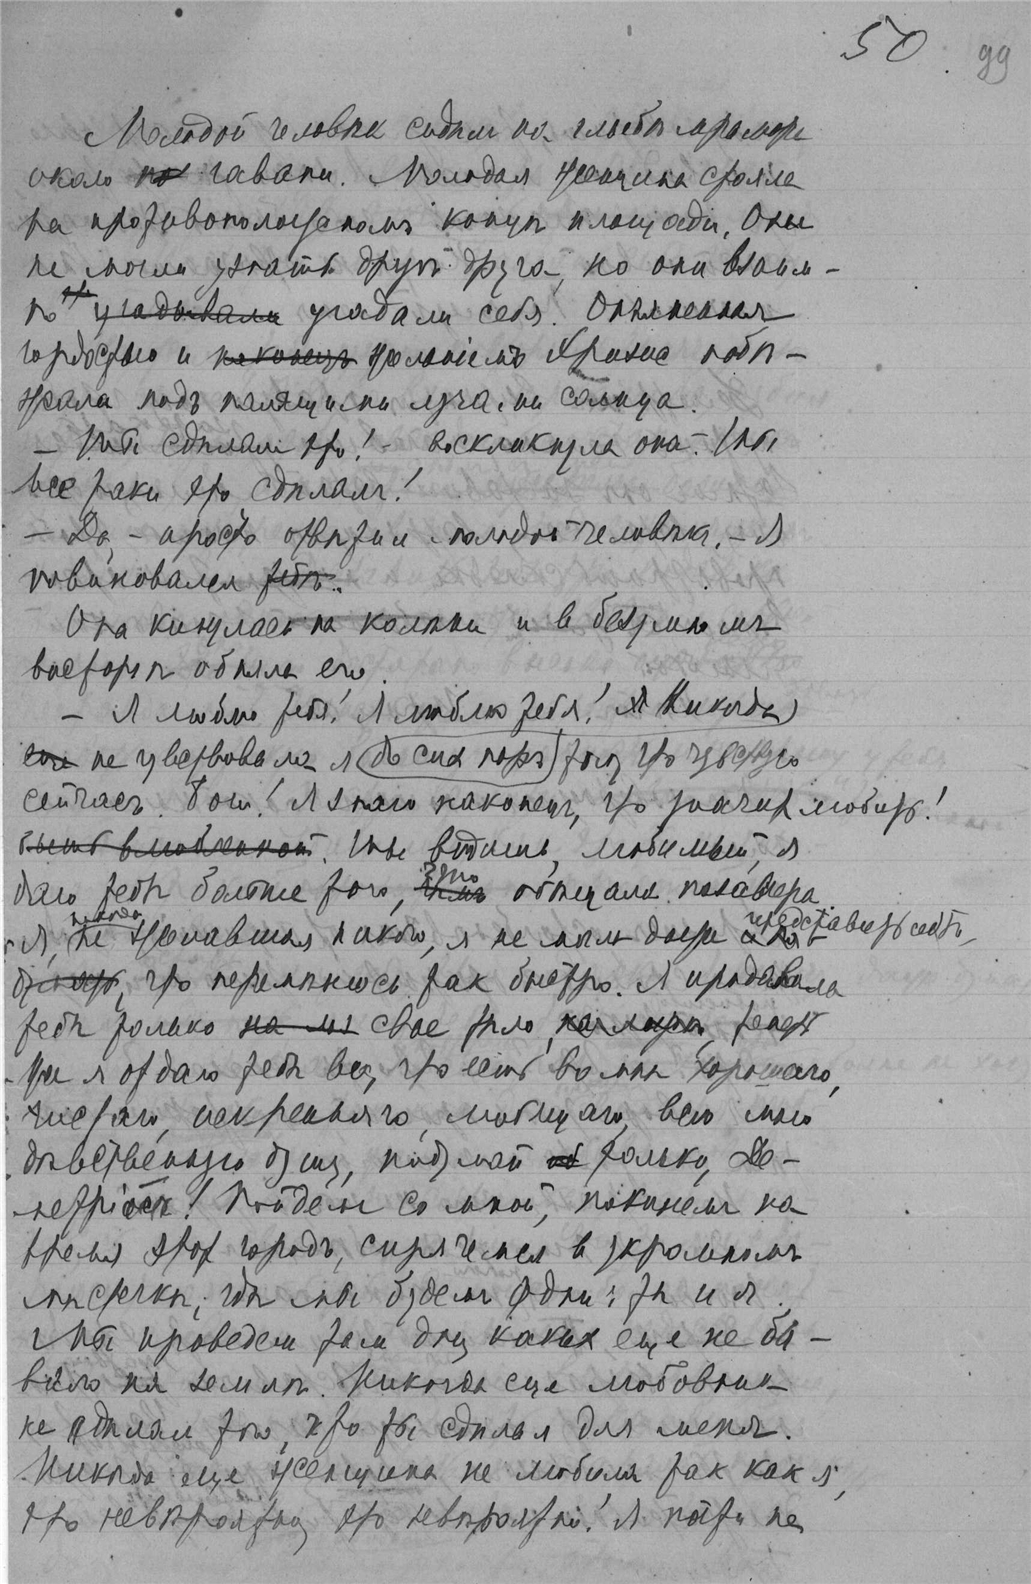 50. 99
Молодой человѣкъ сидѣлъ на глыбѣ мрамора
около по гавани. Молодая женщина стояла
на противоположномъ концѣ площади. Они
не могли узнать другъ друга, но они взаим-
но угадывали угадали себя. Опьяненная
гордостью и наконецъ желаніемъ Хризис побѣ-
жала подъ палящими лучами солнца.
— Ты сдѣлалъ это! — воскликнула она. — Ты
все таки это сдѣлалъ!
— Да, — просто отвѣтилъ молодой человѣкъ. — Я
повиновался тебѣ.
Она кинулась на колѣни и в безумномъ
восторгѣ обняла его.
— Я люблю тебя! Я люблю тебя! Я Никогда
еще не чувствовала я до сих поръ того, что чувствую
сейчасъ. Боги! Я знаю наконецъ, что значитъ любить!
быть влюбленной. Ты видишь, любимый, я
даю тебѣ больше того, чѣмъ что обѣщала позавчера
Я, не никогда желавшая никого, я не могла даже представить себѣ,
думать, что перемѣнюсь так быстро. Я продавала
тебѣ только на ло свое тѣло, теперь
же я отдаю тебѣ все, что есть во мнѣ хорошаго,
чистаго, искренняго, любящаго, всю мою
дѣвственную душу, подумай об только, Де-
метріосъ! Пойдемъ со мной, покинемъ на
время этот городъ, спрячемся в укромномъ
мѣстечкѣ, гдѣ мы будемъ одни: ты и я.
Мы проведем там дни, каких еще не бы-
вало на землѣ. Никогда еще любовник
не сдѣлал того, что ты сдѣлал для меня.
Никогда еще женщина не любила так как я,
это невѣроятно, это невѣроятно! Я почти не